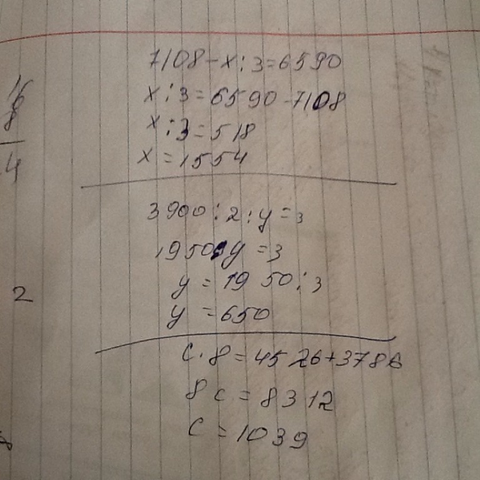 16
8
4
2
8
7108-x:3=6590
x:3=6590-7108
x:3=518
x=1554
3900:2:y=3
1950:y=3
y=1950:3
y=650
c.8=4526+3786
8c=8312
c=1039